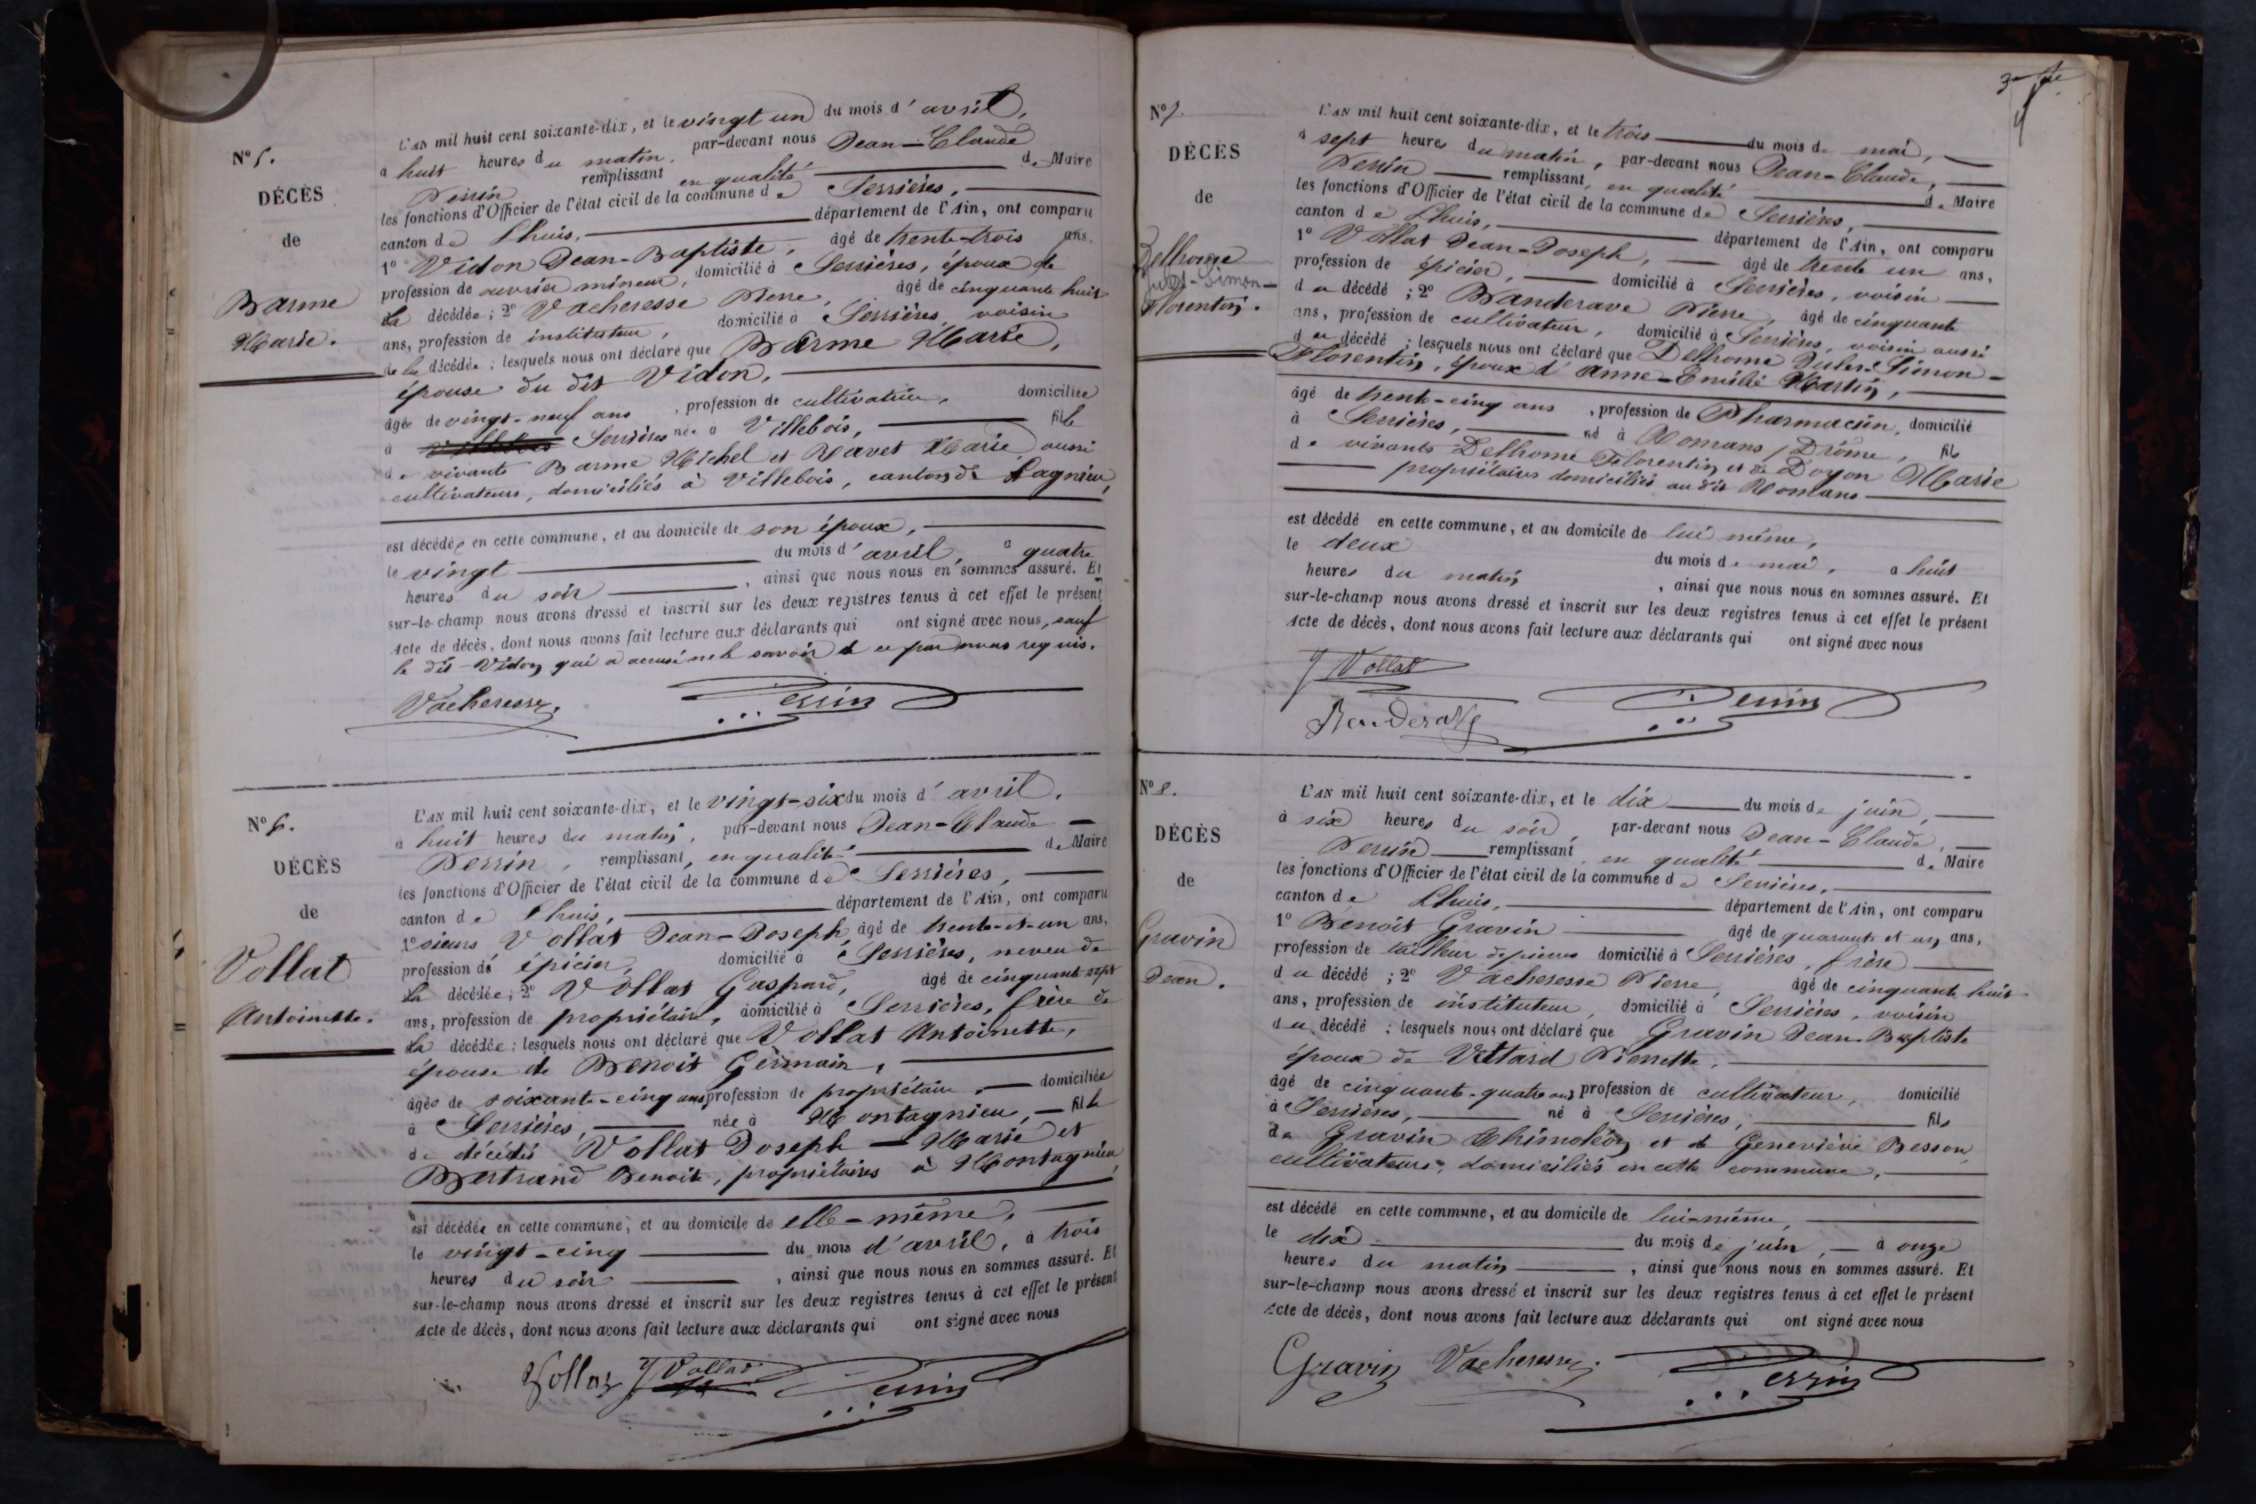 N° 5.
DÉCÈS
de
Barme
Marie.
L'AN mil huit cent soixante-dix, et le vingt un du mois d'avril,
à huit heures du matin, par-devant nous Jean-Claude
Perrin remplissant en qualité de Maire
les fonctions d'Officier de l'état civil de la commune de Serrières,
canton de Lhuis, département de l'Ain, ont comparu
1° Vidon Jean-Baptiste, âgé de trente-trois ans,
profession de ouvrier mineur, domicilié à Serrières, époux de
la décédée; 2° Vacheresse Pierre, âgé de cinquante huit
ans, profession de instituteur, domicilié à Serrières, voisin
de la décédée; lesquels nous ont déclaré que Barme Marie,
épouse du dit Vidon,
âgée de vingt-neuf ans, profession de cultivatrice, domiciliée
à Serrières née à Villebois, fille
de vivants Barme Michel et Ravet Marie aussi
cultivateurs, domiciliés à Villebois, canton de Lagnieu,
est décédée en cette commune, et au domicile de son époux,
le vingt du mois d'avril, à quatre
heures du soir, ainsi que nous nous en sommes assuré. Et
sur-le-champ nous avons dressé et inscrit sur les deux registres tenus à cet effet le présent
Acte de décès, dont nous avons fait lecture aux déclarants qui ont signé avec nous, sauf
le dit Vidon qui a accusé ne le savoir de ce par nous requis.
Vacheresse Perrin
N° 6.
DÉCÈS
de
Vollat
Antoinette.
L'AN mil huit cent soixante-dix, et le vingt-six du mois d'avril,
à huit heures du matin, par-devant nous Jean-Claude
Perrin, remplissant, en qualité de Maire
les fonctions d'Officier de l'état civil de la commune de Serrières,
canton de Lhuis, département de l'Ain, ont comparu
1° sieurs Vollat Jean-Joseph, âgé de trente-et-un ans,
profession de épicier, domicilié à Serrières, neveu de
la décédée; 2° Vollat Gaspard, âgé de cinquante sept
ans, profession de propriétaire, domicilié à Serrières, frère de
la décédée; lesquels nous ont déclaré que Vollat Antoinette,
épouse de Benoit Germain,
âgée de soixante-cinq ans profession de propriétaire, domiciliée
à Serrières, née à Montagnieu, fille
de décédés Vollat Joseph Marie et
Bertrand Benoite, propriétaires à Montagnieu,
est décédée en cette commune, et au domicile de elle-même,
le vingt-cinq du mois d'avril, à trois
heures du soir, ainsi que nous nous en sommes assuré. Et
sur-le-champ nous avons dressé et inscrit sur les deux registres tenus à cet effet le présent
Acte de décès, dont nous avons fait lecture aux déclarants qui ont signé avec nous
Vollat J Vollat Perrin
N° 7.
DÉCÈS
de
Delhome
Jules-Simon-
Florentin.
L'AN mil huit cent soixante-dix, et le trois du mois de mai,
à sept heures du matin, par-devant nous Jean-Claude,
Perrin remplissant, en qualité de Maire
les fonctions d'Officier de l'état civil de la commune de Serrières,
canton de Lhuis, département de l'Ain, ont comparu
1° Vollat Jean-Joseph, âgé de trente un ans,
profession de épicier, domicilié à Serrières, voisin
du décédé; 2° Banderave Pierre, âgé de cinquante
ans, profession de cultivateur, domicilié à Serrières, voisin aussi
du décédé; lesquels nous ont déclaré que Delhome Jules-Simon-
Florentin, époux d'Anne-Emilie Martin,
âgé de trente-cinq ans, profession de Pharmacien, domicilié
à Serrières, né à Romans, Drôme, fils
de vivants Delhome Florentin et de Doyon Marie
propriétaires domiciliés au dit Romans
est décédé en cette commune, et au domicile de lui même,
le deux du mois de mai, à huit
heures du matin, ainsi que nous nous en sommes assuré. Et
sur-le-champ nous avons dressé et inscrit sur les deux registres tenus à cet effet le présent
Acte de décès, dont nous avons fait lecture aux déclarants qui ont signé avec nous
J Vollat
Perrin
N° 8.
DÉCÈS
de
Gravin
Jean.
L'AN mil huit cent soixante-dix, et le dix du mois de juin,
à six heures du soir, par-devant nous Jean-Claude,
Perrin remplissant, en qualité de Maire
les fonctions d'Officier de l'état civil de la commune de Serrières,
canton de Lhuis, département de l'Ain, ont comparu
1° Benoît Gravin âgé de quarante et un ans,
profession de tailleur de pierres domicilié à Serrières, frère
du décédé; 2° Vacheresse Pierre, âgé de cinquante huit
ans, profession de instituteur, domicilié à Serrières, voisin
du décédé; lesquels nous ont déclaré que Gravin Jean-Baptiste
époux de Vittard Pierrette,
âgé de cinquante-quatre ans profession de cultivateur, domicilié
à Serrières, né à Serrières, fils
de Gravin Thimoléon et de Geneviève Besson,
cultivateurs, domiciliés en cette commune,
est décédé en cette commune, et au domicile de lui-même,
le dix du mois de juin, à onze
heures du matin, ainsi que nous nous en sommes assuré. Et
sur-le-champ nous avons dressé et inscrit sur les deux registres tenus à cet effet le présent
Acte de décès, dont nous avons fait lecture aux déclarants qui ont signé avec nous
Gravin Vacheresse Perrin